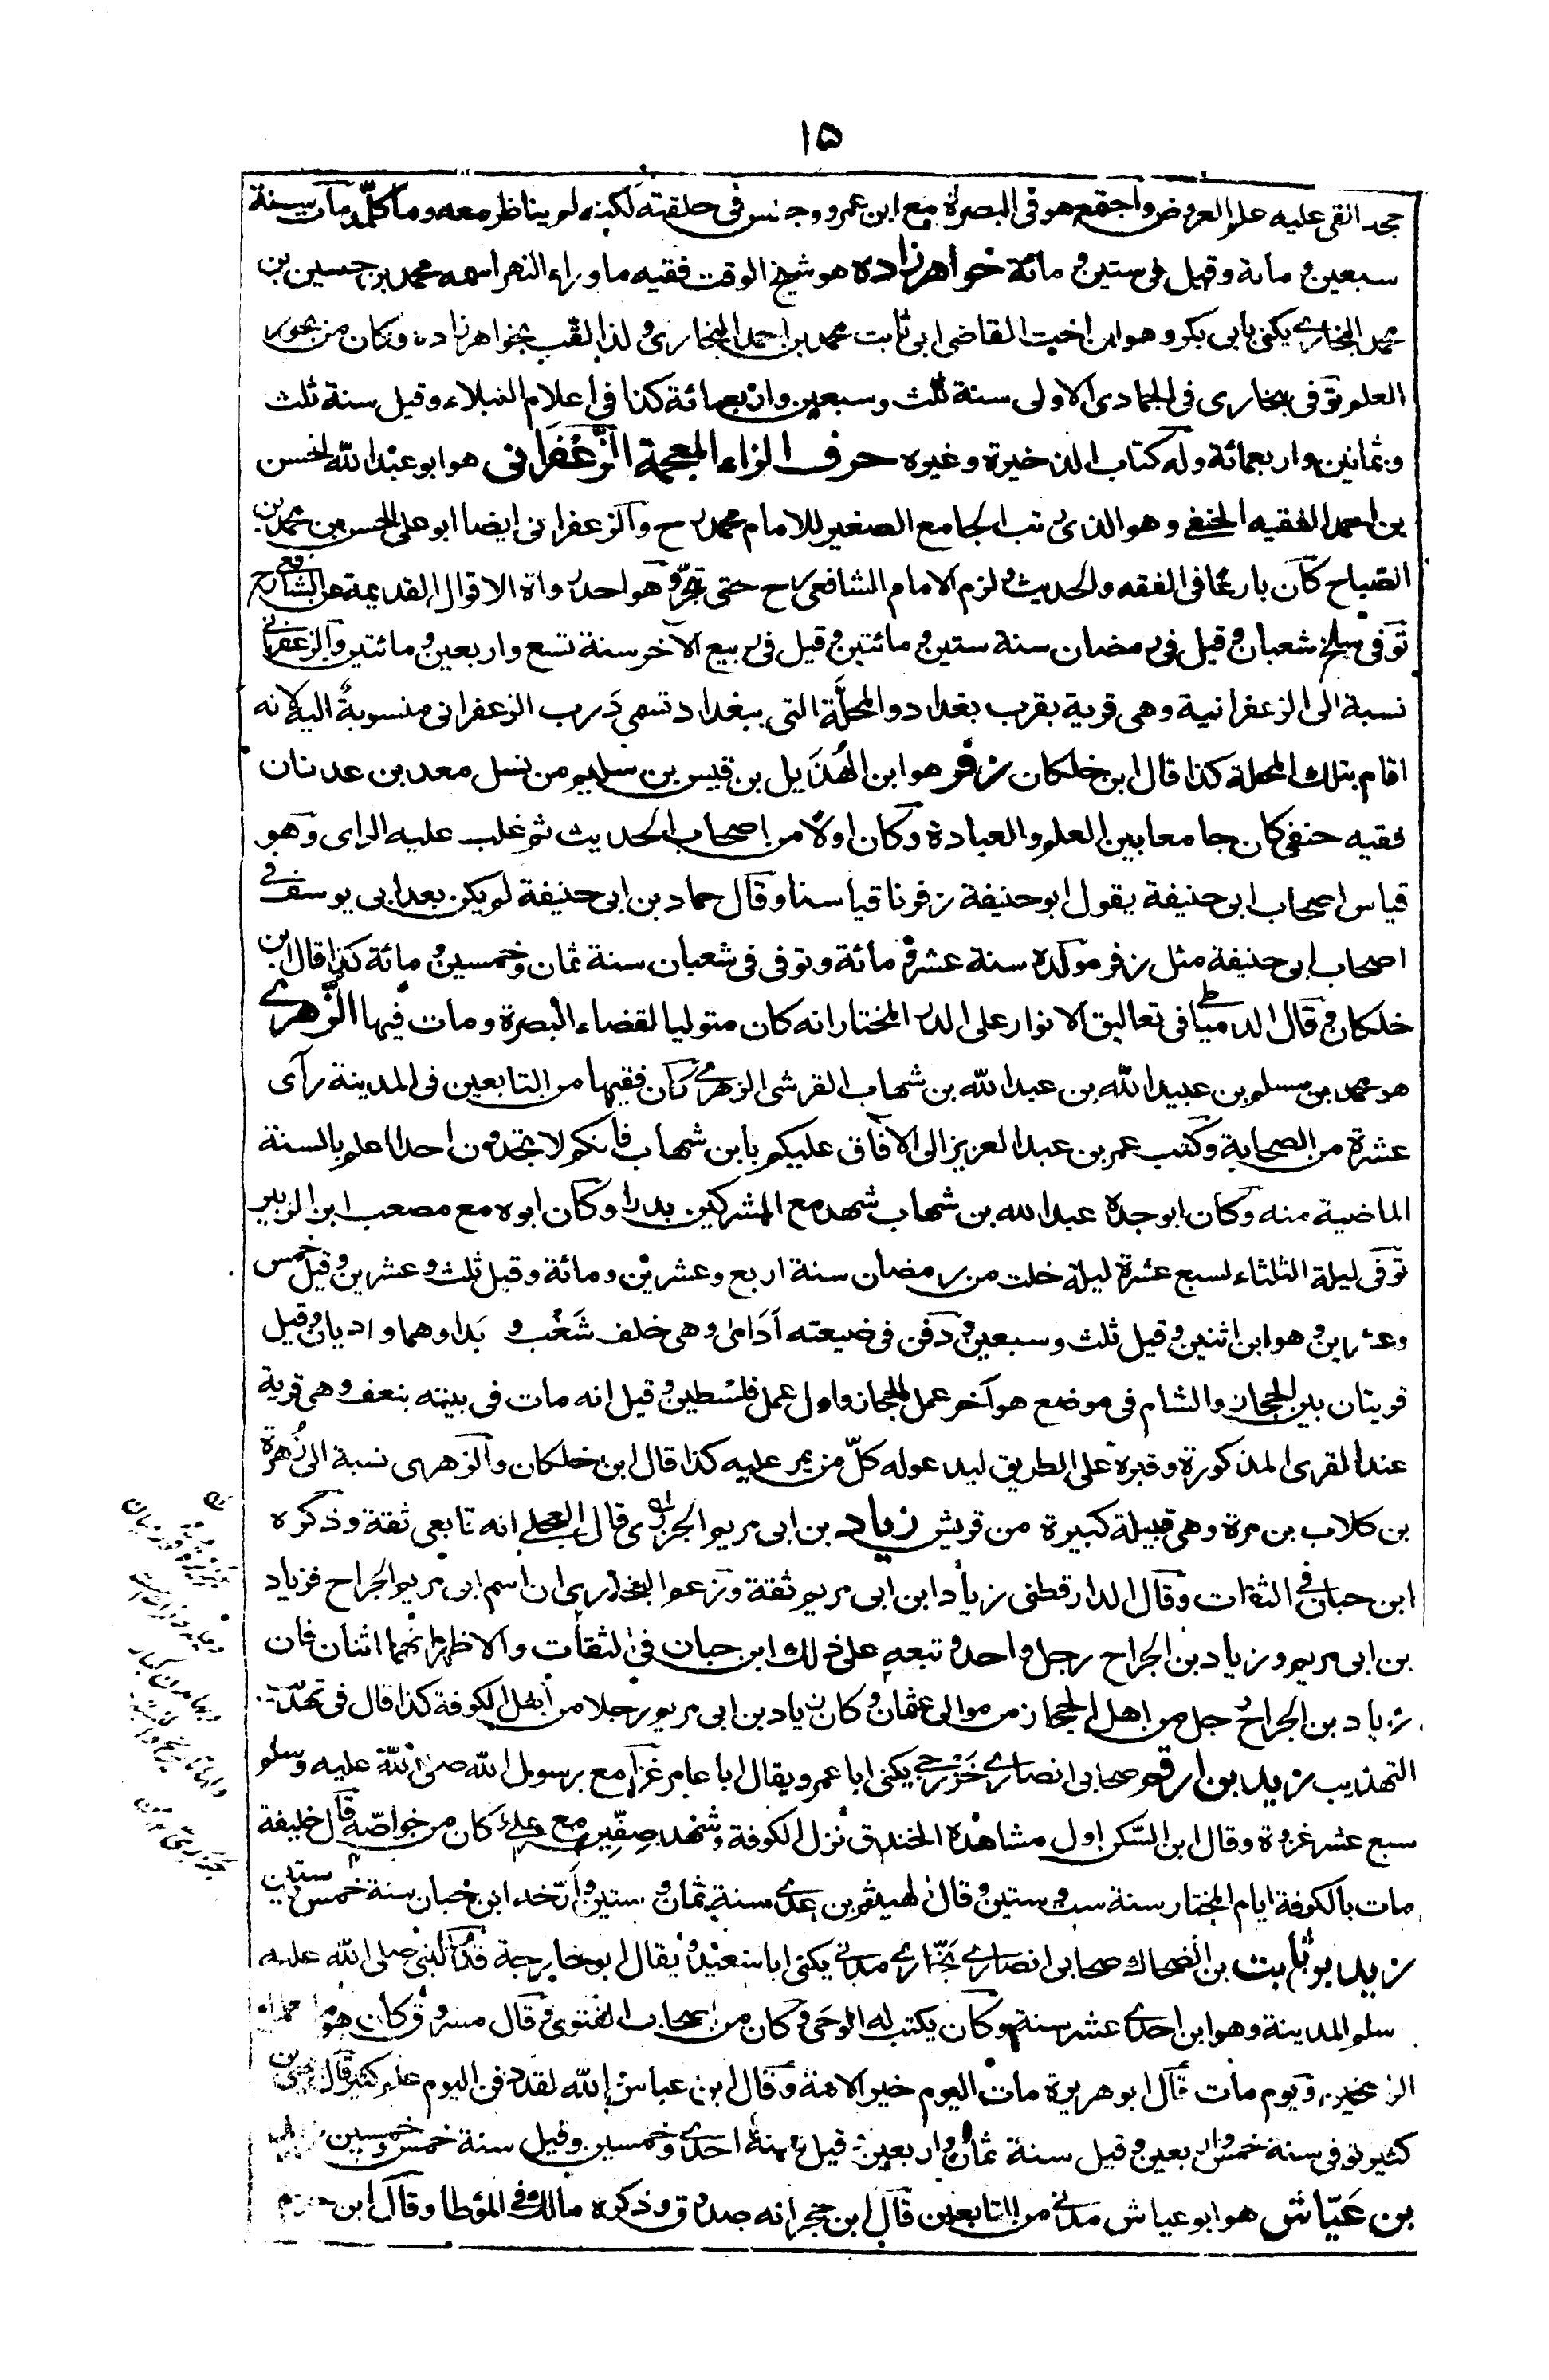 ١٥
حجد القى عليه علم العروض واجتمع هو فى البصرة مع ابن عمرو وجلس فى حلقته لكنه لم يناظر معه وما كلّمه مات سنة
سبعين و مائة وقيل فى ستين و مائة خواهرزاده هو شيخ الوقت فقيه ما وراء النهر اسمه محمد بن حسين بن
محمد البخارى يكنى بابى بكر وهو ابن اخت القاضى ابى ثابت محمد بن احمد البخارى و لذا لقب بخواهرزاده وكان من بحور
العلم توفى ببخارى فى الجمادى الاولى سنة ثلث وسبعين واربعمائة كذا فى اعلام النبلاء وقيل سنة ثلث
وثمانين واربعمائة وله كتاب الذخيرة وغيره حرف الزاء المعجمة الزَّعْفَرانى هو ابو عبد الله الحسن
بن احمد الفقيه الحنفى وهو الذى رتب الجامع الصغير للامام محمد رح والزعفرانى ايضا ابو على الحسن بن محمد بن
الصّباح كان بارعا فى الفقه والحديث و لزم الامام الشافعى رح حتى تبحّر و هو احد رواة الاقوال القديمة عن الشافعى رح
توفى سلخ شعبان و قيل فى رمضان سنة ستين و مائتين و قيل فى ربيع الآخر سنة تسع واربعين و مائتين والزعفرانى
نسبة الى الزعفرانية وهى قرية بقرب بغداد والمحلّة التى ببغداد تسمى دَرب الزعفرانى منسوبةٌ اليه لانه
اقام بتلك المحلة كذا قال ابن خلكان زفر هو ابن الهُذَيل بن قيس بن سليم من نسل معد بن عدنان
فقيه حنفى كان جامعا بين العلم والعبادة وكان اولا من اصحاب الحديث ثم غلب عليه الراى وهو
قياس اصحاب ابى حنيفة يقول ابو حنيفة زفرنا قياسنا وقال حماد بن ابى حنيفة لم يكن بعد ابى يوسف فى
اصحاب ابى حنيفة مثل زفر مولده سنة عشر و مائة وتوفى فى شعبان سنة ثمان وخمسين و مائة كذا قال ابن
خلكان و قال الدمياطى فى تعاليق الانوار على الدر المختار انه كان متوليا لقضاء البصرة ومات فيها الزُّهرى
هو محمد بن مسلم بن عبيد الله بن عبد الله بن شهاب القرشى الزهرى كان فقيها من التابعين فى المدينة رآى
عشرة من الصحابة وكتب عمر بن عبد العزيز الى الآفاق عليكم بابن شهاب فانكم لا تجدون احدا اعلم بالسنة
الماضية منه وكان ابو جده عبد الله بن شهاب شهد مع المشركين بدرا وكان ابوه مع مصعب ابن الزبير
توفى ليلة الثلثاء لسبع عشرة ليلة خلت من رمضان سنة اربع وعشرين ومائة وقيل ثلث وعشرين و قيل خمس
وعشرين و هو ابن اثنين و قيل ثلث وسبعين و دفن فى ضيعته اَدَامى وهى خلف شَغْب و بَدا وهما واديان وقيل
قريتان بين الحجاز والشام فى موضع هو آخر عمل الحجاز واول عمل فلسطين و قيل انه مات فى بيته بنعف وهى قرية
عند القرى المذكورة وقبره على الطريق ليدعو له كلّ من يمر عليه كذا قال ابن خلكان والزهرى نسبة الى زُهرة
بن كلاب بن مرة وهى قبيلة كبيرة من قريش زياد بن ابى مريم الجزرى قال العجلى انه تابعى ثقة وذكره
ابن حبان فى الثقات وقال الدارقطنى زياد ابن ابى مريم ثقة وزعم البخارى ان اسم ابى مريم الجراح فزياد
بن ابى مريم وزياد بن الجراح رجل واحد و تبعه على ذلك ابن حبان فى الثقات والاظهر انهما اثنان فان
زياد بن الجراح رجل من اهل الحجاز من موالى عثمان و كان زياد بن ابى مريم رجلا من اهل الكوفة كذا قال فى تهذيب
التهذيب زيد بن ارقم صحابى انصارى خَزْرجى يكنى ابا عمرو يقال ابا عامر غزا مع رسول الله صلى الله عليه وسلم
سبع عشر غزوة وقال ابن السّكن اول مشاهده الخندق نزل الكوفة وشهد صِفّين مع على كان من خواصّه قال خليفة
مات بالكوفة ايام المختار سنة ست و ستين و قال الهيثم بن عدى سنة ثمان و ستين و ارّخه ابن حبان سنة خمس و ستين
زيد بن ثابت بن الضحاك صحابى انصارى نجّارى مدنى يكنى ابا سعيد و يقال ابو خارجة قدم النبى صلى الله عليه
سلم المدينة وهو ابن احدى عشر سنة وكان يكتب له الوحى و كان من اصحاب الفتوى و قال مسروق كان هو
ويوم مات قال ابو هريرة مات اليوم خير الامة وقال ابن عباس و الله لقد دفن اليوم علم كثير قال
كثير توفى سنة خمس واربعين و قيل سنة ثمان واربعين و قيل سنة احدى وخمسين وقيل سنة خمس وخمسين
بن عَيّاش هو ابو عياش مدنى من التابعين قال ابن حجر انه صدوق وذكره مالك فى المؤطا وقال ابن